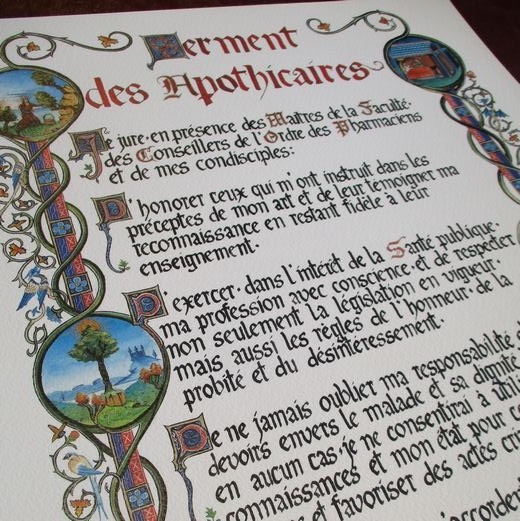 Serment
des Apothicaires
Je jure·en présence des Maîtres de la Faculté·
des Conseillers de l'Ordre des Pharmaciens
et de mes condisciples:
D'honorer ceux qui m'ont instruit dans les
préceptes de mon art et de leur témoigner ma
reconnaissance en restant fidèle à leur
enseignement·
D'exercer·dans l'intérêt de la Santé publique·
ma profession avec conscience·et de respecter
non seulement la législation en vigueur·
mais aussi les règles de l'honneur·de la
probité et du désintéressement·
De ne jamais oublier ma responsabilité
devoirs envers le malade et sa dignité
en aucun cas·je ne consentirai à
connaissances et mon état pour
et favoriser des actes